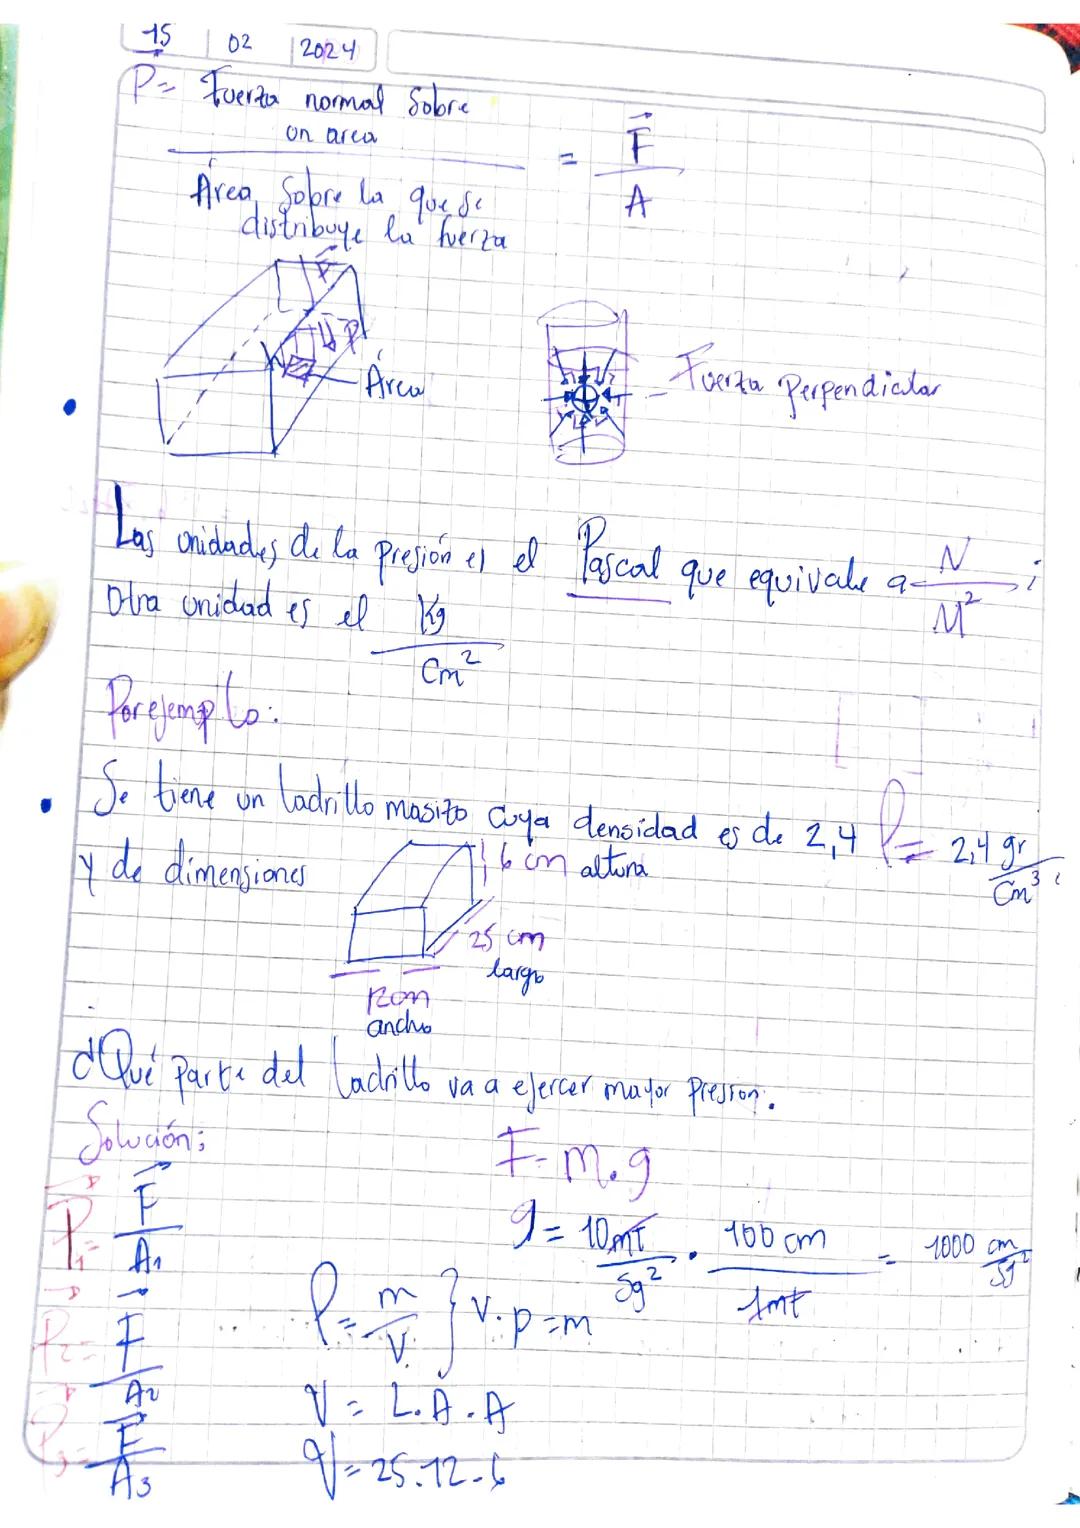 15 02 2024
P⃗ = Fuerza normal Sobre
un area
Área Sobre la que se
distribuye la fuerza
= F⃗ / A
F⃗
P
Área
Fuerza Perpendicular
Las unidades de la presión es el Pascal que equivale a N / M² ;
Otra unidad es el Kg / Cm²
Por ejemplo:
Se tiene un ladrillo masizo cuya densidad es de 2,4 ρ = 2,4 gr / Cm³
y de dimensiones
6 cm altura
25 cm
largo
12cm
ancho
¿Qué parte del ladrillo va a ejercer mayor Presion.
Solución:
F = m.g
P⃗₁ = F⃗ / A₁
g = 10 mt / Sg² . 100 cm / 1mt = 1000 cm / Sg²
P⃗₂ = F⃗ / A₂
ρ = m / V } V.ρ = m
P⃗₃ = F⃗ / A₃
V = L.A.A
V = 25.12.6